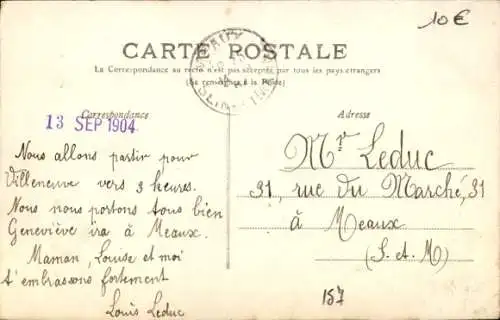 10€
CARTE POSTALE
La Correspondance au recto n'est pas acceptée par tous les pays étrangers
(Se renseigner à la Poste)
Correspondance
Adresse
13 SEP 1904
Nous allons partir pour
Villeneuve vers 3 heures.
Nous nous portons tous bien
Geneviève ira à Meaux.
Maman, Louise et moi
t'embrassons fortement
Louis Leduc
Mr Leduc
31, rue du Marché, 31
à Meaux
(S. et M)
157